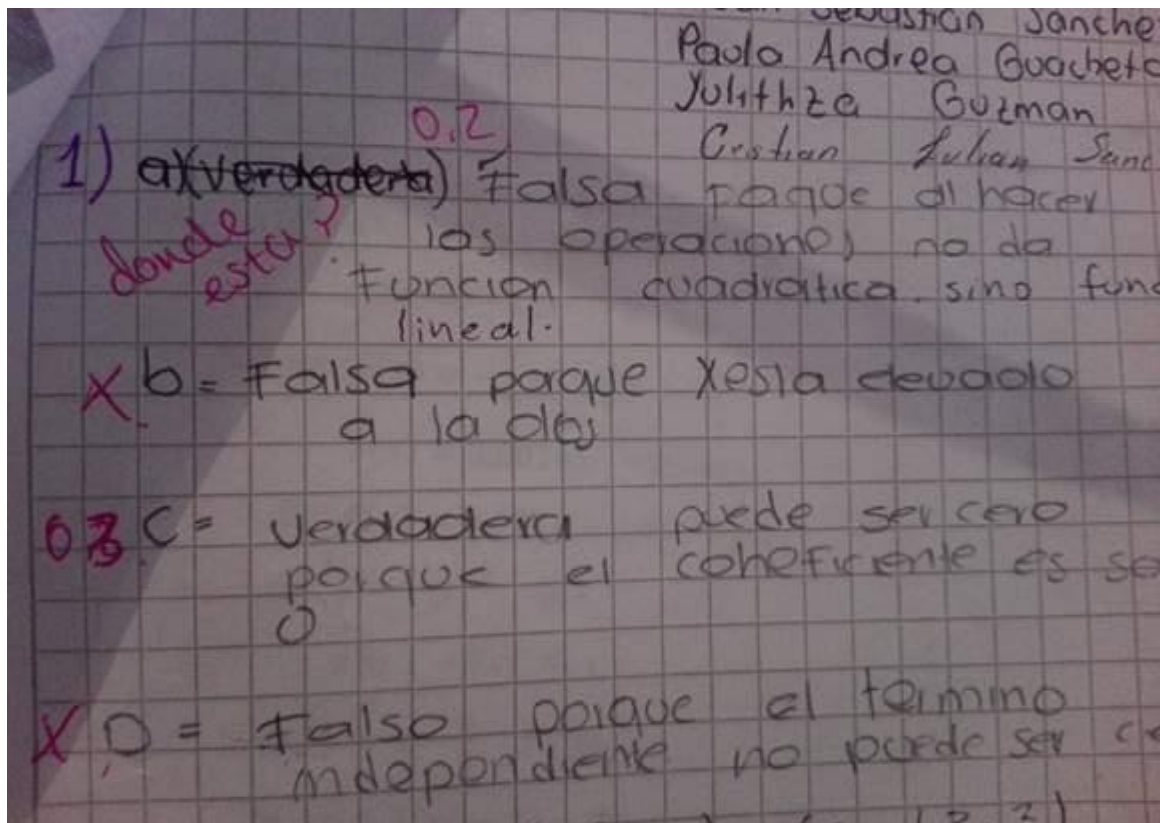 Sebastian Sanche
Paola Andrea Guacheta
Yulithza Guzman
Cristian Julian Sanc
0.2
1) a) (verdadera) Falsa porque al hacer
donde esta?
las operaciones no da
Funcion cuadratica. sino func
lineal.
X b = Falsa porque X esta elevado
a la dos
03 C = Verdadera puede ser cero
porque el coheficiente es se
0
X D = Falso porque el termino
independiente no puede ser ce